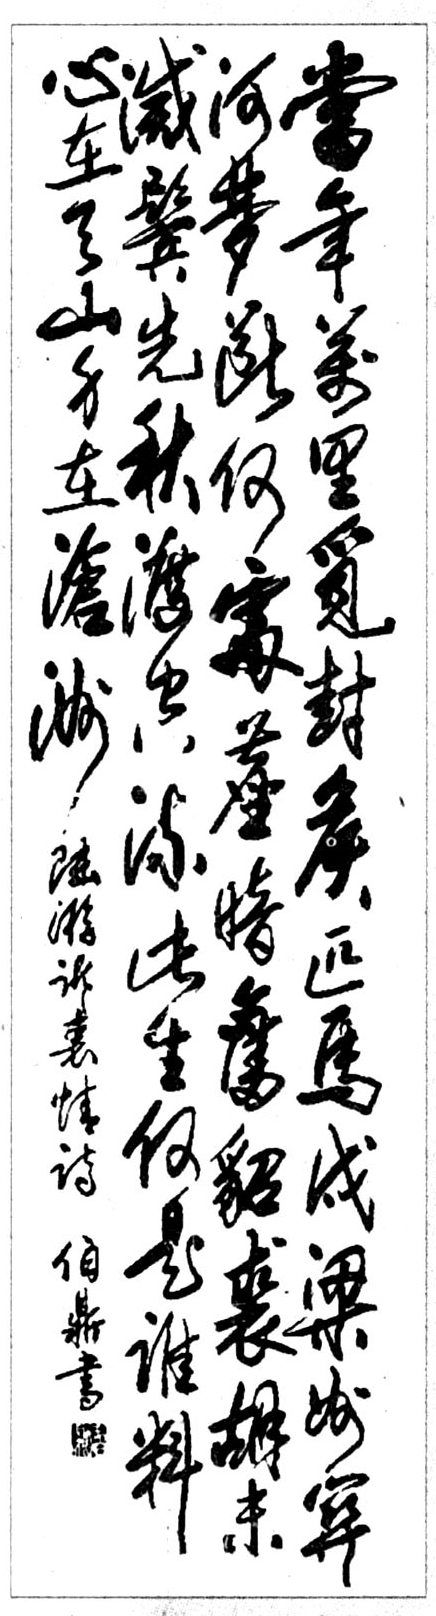 當年萬里覓封侯匹馬戍梁州關
河夢斷何處塵暗舊貂裘胡未
滅鬢先秋淚空流此生何是誰料
心在天山身在滄洲 陸游訴衷情詩 伯鼎書